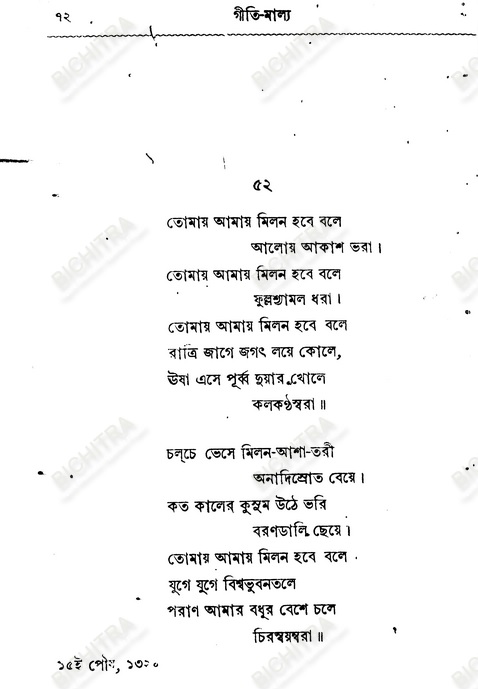 ৭২ গীতি-মাল্য
৫২
তোমায় আমায় মিলন হবে বলে
আলোয় আকাশ ভরা।
তোমায় আমায় মিলন হবে বলে
ফুল্লশ্যামল ধরা।
তোমায় আমায় মিলন হবে বলে
রাত্রি জাগে জগৎ লয়ে কোলে,
ঊষা এসে পূর্ব্ব দুয়ার খোলে
কলকণ্ঠস্বরা॥
চল্‌চে ভেসে মিলন-আশা-তরী
অনাদিস্রোত বেয়ে।
কত কালের কুসুম উঠে ভরি
বরণডালি ছেয়ে।
তোমায় আমায় মিলন হবে বলে
যুগে যুগে বিশ্বভুবনতলে
পরাণ আমার বধূর বেশে চলে
চিরস্বয়ম্বরা॥
১৫ই পৌষ,
BICHITRA
BICHITRA
BICHITRA
BICHITRA
BICHITRA
BICHITRA